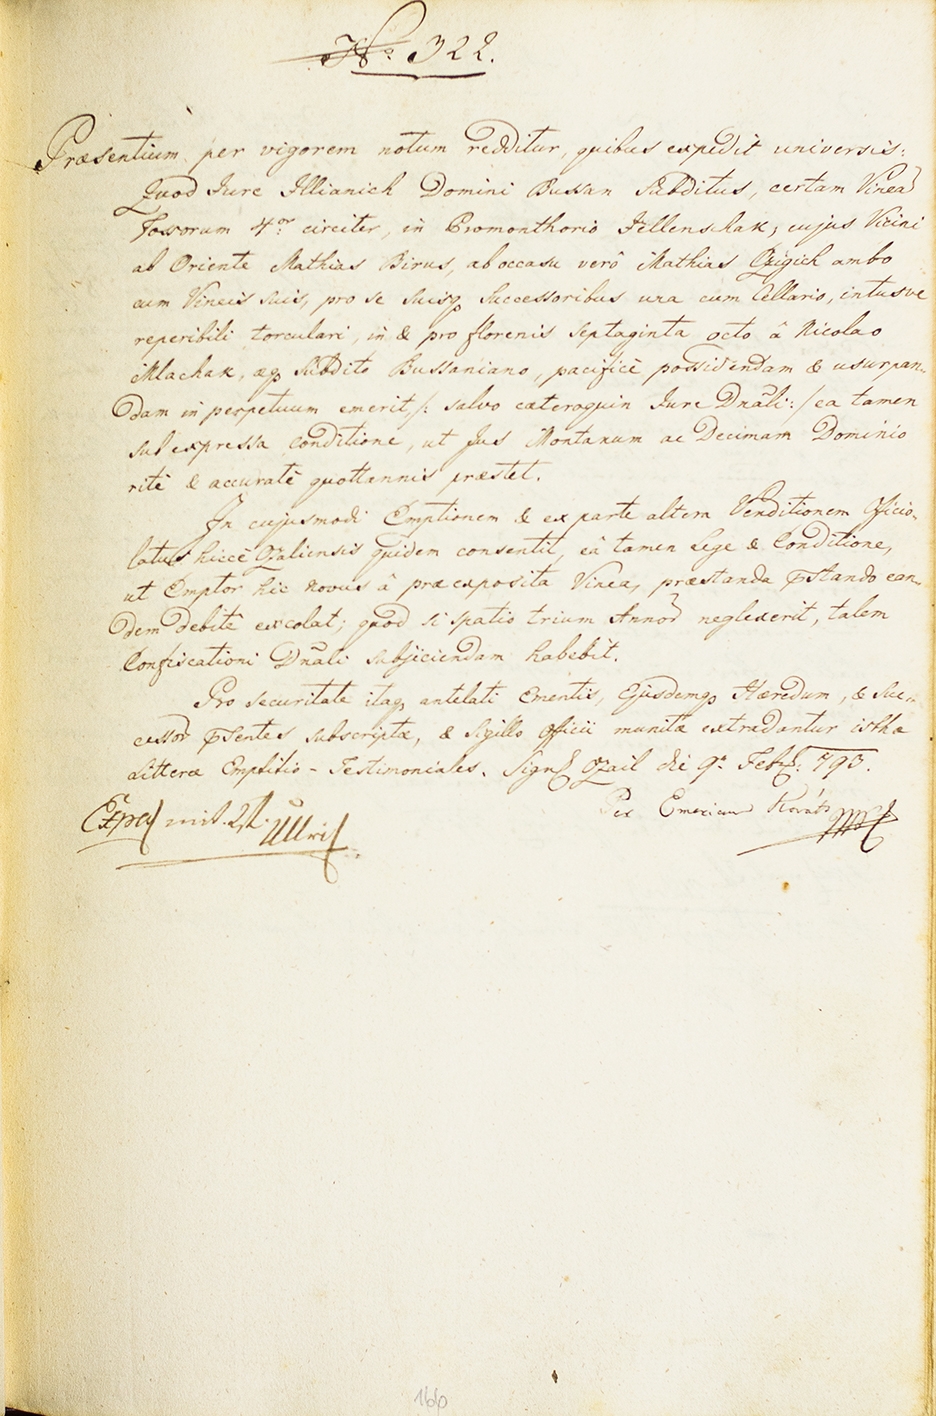 No. 322.
Præsentium per vigorem notum redditur, quibus expedit universis:
Quod Jure Illianich Domini Bussan Subditus, certam Vineā
Fossorum 4or circiter, in Promonthorio Jellenschak, cujus Vicini
ab Oriente Mathias Birus, ab occasu verô Mathias ambo
cum Vineis suis, pro se suisq Successoribus una cum Cellario, intusve
reperibili torculari, in & pro florenis septaginta octo â Nicolao
Mlachak, æq Subdito Bussaniano, pacificè possidendam & usurpan-
dam in perpetuum emerit, /: salvo cæteroquin Jure Dnali :/ ea tamen
sub expressa Conditione, ut Jus Montanum ac Decimam Dominio
ritè & accuratè quottannis præstet.
In cujusmodi Emptionem & ex parte altera Venditionem Officio-
latus hiccè Ozaliensis quidem consentit, eâ tamen Lege & Conditione,
ut Emptor hic novus â præexposita Vinea, præstanda pstando ean-
dem debitè excolat; quod si spatio trium Annor neglexerit, talem
Confiscationi Dnali subjiciendam habebit.
Pro securitate itaq antelati Ementis, Ejusdemq Hæredum, & Suc-
cessor psentes subscriptæ, & Sigillo Officii munitæ extradantur isthæ
Litteræ Emptitio-Testimoniales. Sign Ozail die 9a Feb: 793.
Per Emericum Horváth
160